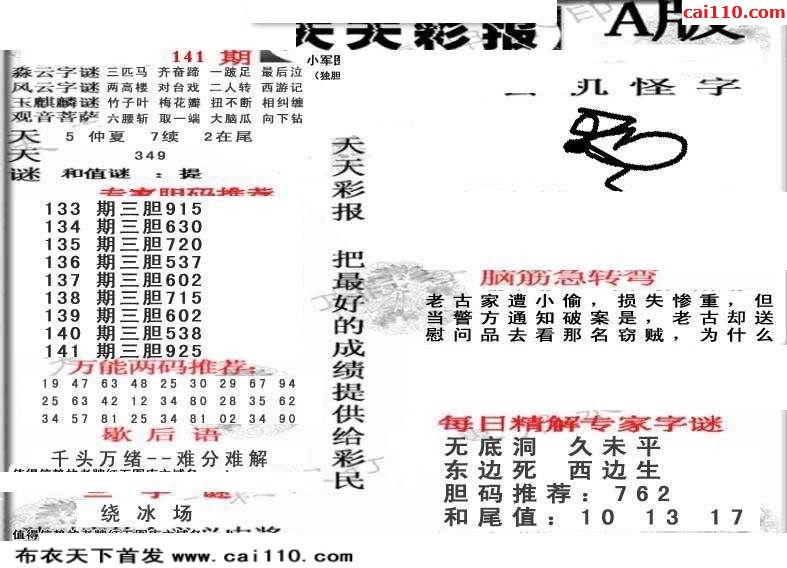 cai110.com
天天彩报
A版
141 期
小军团
(独胆
森云字谜 三匹马 齐奋蹄 一跛足 最后泣
风云字谜 两高楼 对台戏 二人转 西游记
玉麒麟谜 竹子叶 梅花瓣 扭不断 相纠缠
观音菩萨 六腰斩 取一端 大脑瓜 向下钻
天 5 仲夏 7续 2在尾
天 349
谜 和值谜 :提
专家胆码推荐
133 期三胆915
134 期三胆630
135 期三胆720
136 期三胆537
137 期三胆602
138 期三胆715
139 期三胆602
140 期三胆538
141 期三胆925
万能两码推荐:
19 47 63 48 25 30 29 67 94
25 63 42 12 34 80 28 35 62
34 57 81 25 34 81 02 34 90
歇后语
千头万绪--难分难解
三字谜
绕冰场
值得信
布衣天下首发 www.cai110.com
天天彩报 把最好的成绩提供给彩民
玑怪字
脑筋急转弯
老古家遭小偷，损失惨重，但
当警方通知破案是，老古却送
慰问品去看那名窃贼，为什么
每日精解专家字谜
无底洞 久未平
东边死 西边生
胆码推荐：762
和尾值：10 13 17